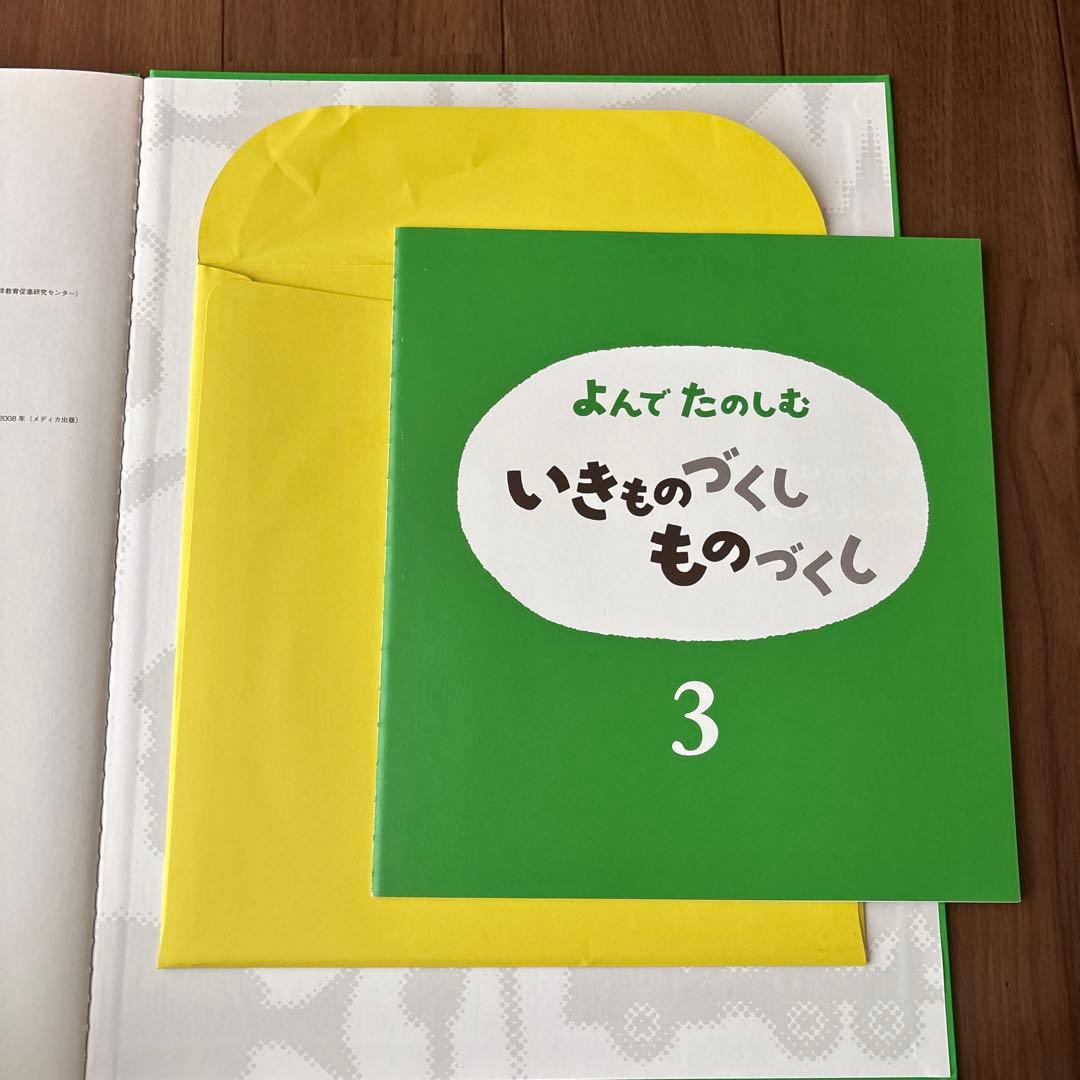 育促進研究センター）
2008 年（メディカ出版）
よんで たのしむ
いきものづくし
ものづくし
3